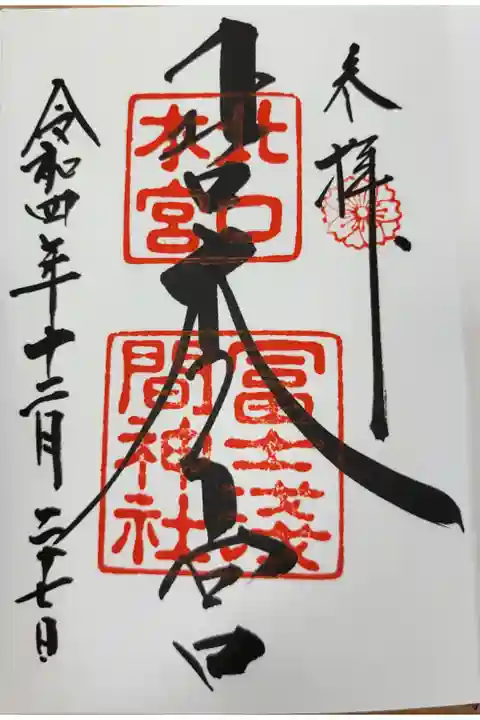 奉拝
北口
本宮
冨士淺
間神社
令和四年十二月二十七日